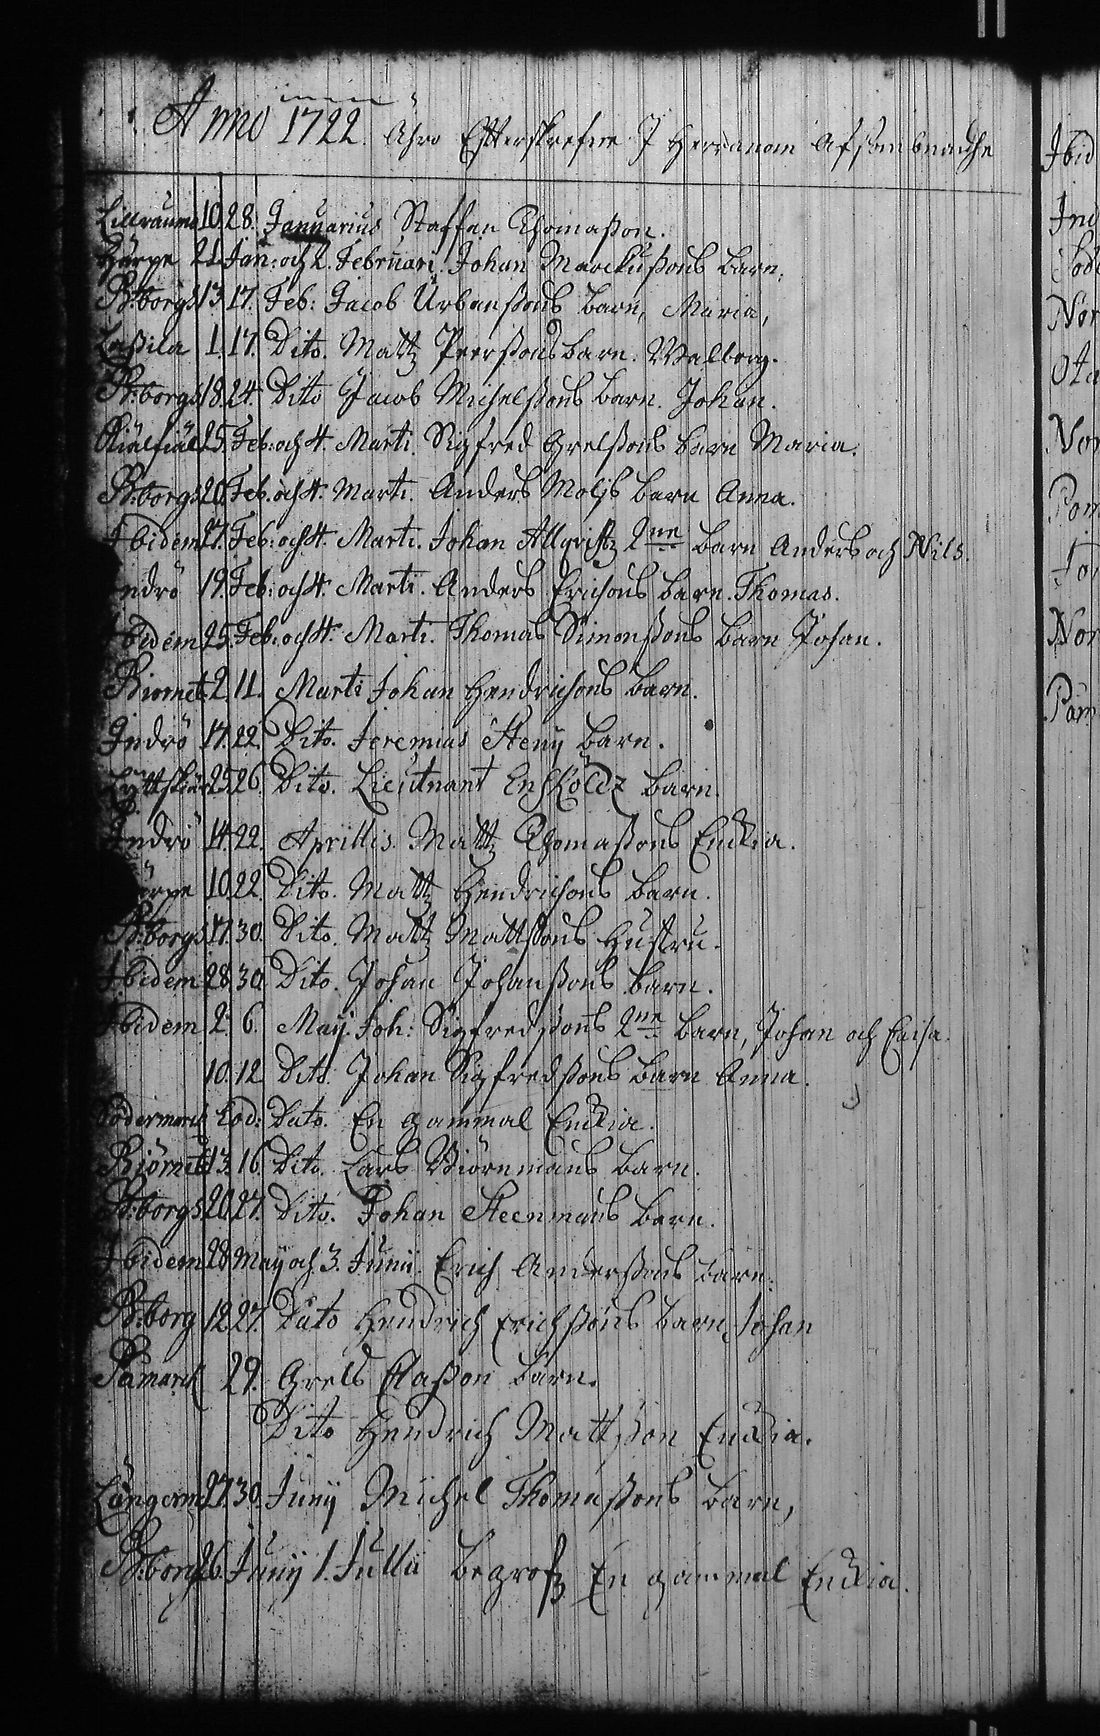 Anno 1722. Ähro Effterskrefne J Herranom Afsombnadhe
Lillraumo 10. 28. Januarius Staffan Thomaßon.
Härpe 21. Jan: och 2. Februari. Johan Marckußons barn.
B:borgs 13. 17. Feb: Jacob Urbanßons barn, Maria,
Laßila 1. 17. Dito. Mattz Peerßons barn. Walborg.
B:borgs 18. 24. Dito Jacob Michelßons barn. Johan.
25. Feb: och 4. Marti. Sigfred Grelßons barn Maria.
B:borgs 20. Feb. och 4. Marti. Anders Molijs barn Anna.
Ibidem 27. Feb: och 4. Marti. Johan Allqvistz 2ne barn Anders och Nils.
Indrö 19. Feb: och 4. Marti. Anders Erichsons barn. Thomas.
Ibidem 25. Feb: och 4. Marti. Thomas Simonßons barn Johan.
Biörnet 2. 11. Marti Johan Hendrichsons barn.
Indrö 17. 22. Dito. Jeremias Steny barn.
25. 26. Dito. Lieutnant Enskiöldz barn.
Indrö 14. 22. Aprillis. Mattz Thomaßons Enckia.
Härpe 10. 22. Dito. Mattz Hendrichsons barn.
B:borgs 17. 30. Dito. Mattz Mattßons Hustru.
Ibidem 28. 30. Dito. Johan Johanßons barn.
Ibidem 2. 6. Maij. Joh: Sigfredßons 2ne barn, Johan och Caisa.
10. 12. Dito. Johan Sigfredßons barn Anna.
Södermarck Eod: Dato. En gammal Enckia.
Biörnet 13. 16. Dito. Lars Biörnmans barn.
B:borgs 20. 27. Dito. Johan Steenmans barn.
Ibidem 28 Maij och 3. Junii. Erich Anderßons barn.
B:borg 12. 27. Dato Hendrich Erichßons barn Johan
Påmarck 29. Grels Claßon barn.
Dito Hendrich Mattßon Enckia.
Långerm 27. 30. Junij Michel Thomaßons barn,
B:borgs 26. Junij 1. Julii begrofz En gammal Enckia.
Ibid
Ind
Söd
Nor
Ota
Nor
Pom
Nor
Påm